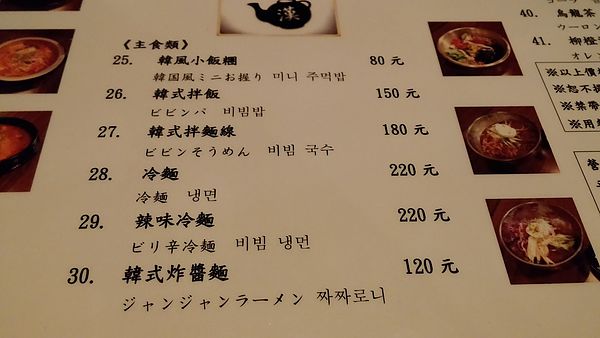 漢
《主食類》
25. 韓風小飯糰 80 元
韓国風ミニお握り 미니 주먹밥
26. 韓式拌飯 150 元
ビビンバ 비빔밥
27. 韓式拌麵線 180 元
ビビンそうめん 비빔 국수
28. 冷麵 220 元
冷麺 냉면
29. 辣味冷麵 220 元
ビリ辛冷麺 비빔 냉먼
30. 韓式炸醬麵 120 元
ジャンジャンラーメン 짜짜로니
40. 烏龍茶
ウーロン
41. 柳橙
オレン
※以上價
※恕不提
※禁帶
※用
營